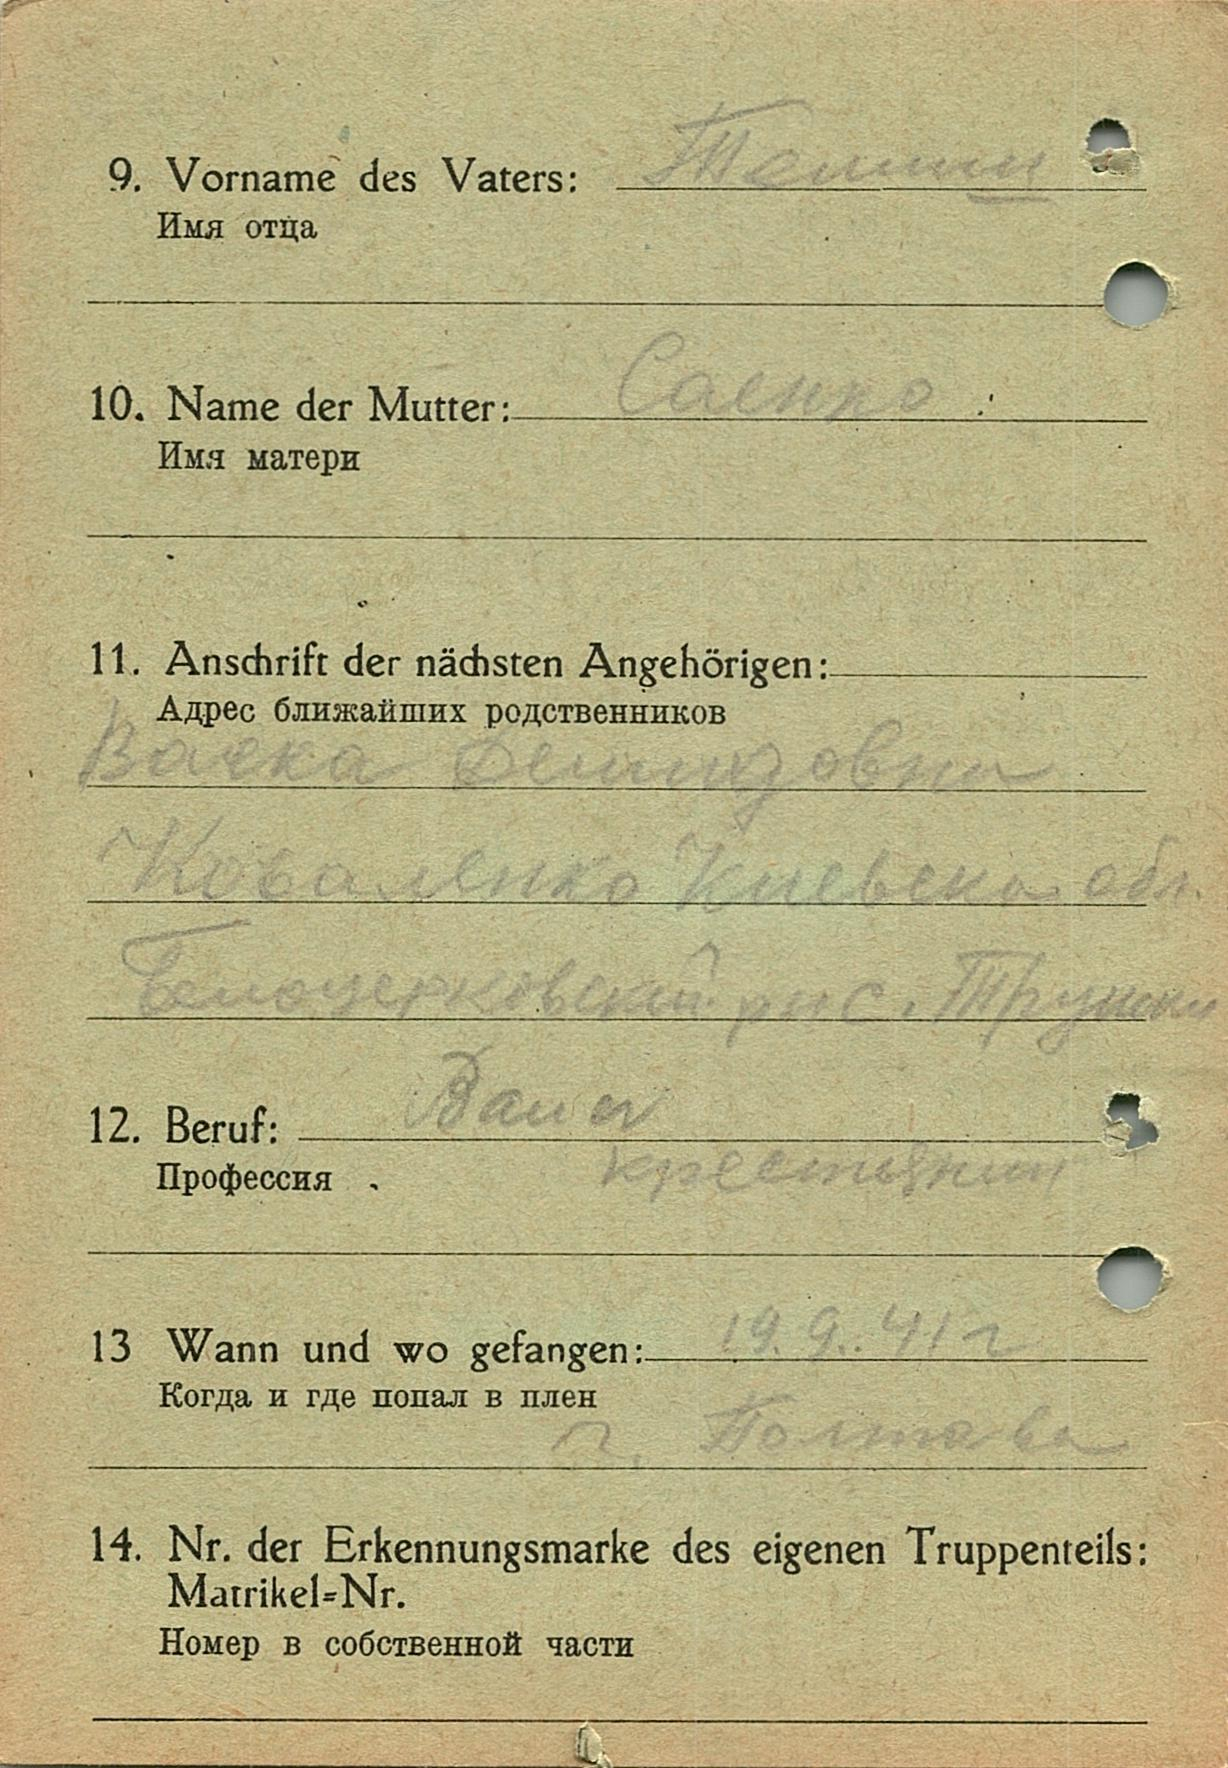 9. Vorname des Vaters:
Имя отца
10. Name der Mutter: Саенко
Имя матери
11. Anschrift der nächsten Angehörigen:
Адрес ближайших родственников
Коваленко Киевска обл.
Белоцерковский рн с. Трушки
12. Beruf: Bauer
Профессия крестьянин
13 Wann und wo gefangen: 19.9.41 г
Когда и где попал в плен
г. Полтава
14. Nr. der Erkennungsmarke des eigenen Truppenteils:
Matrikel-Nr.
Номер в собственной части